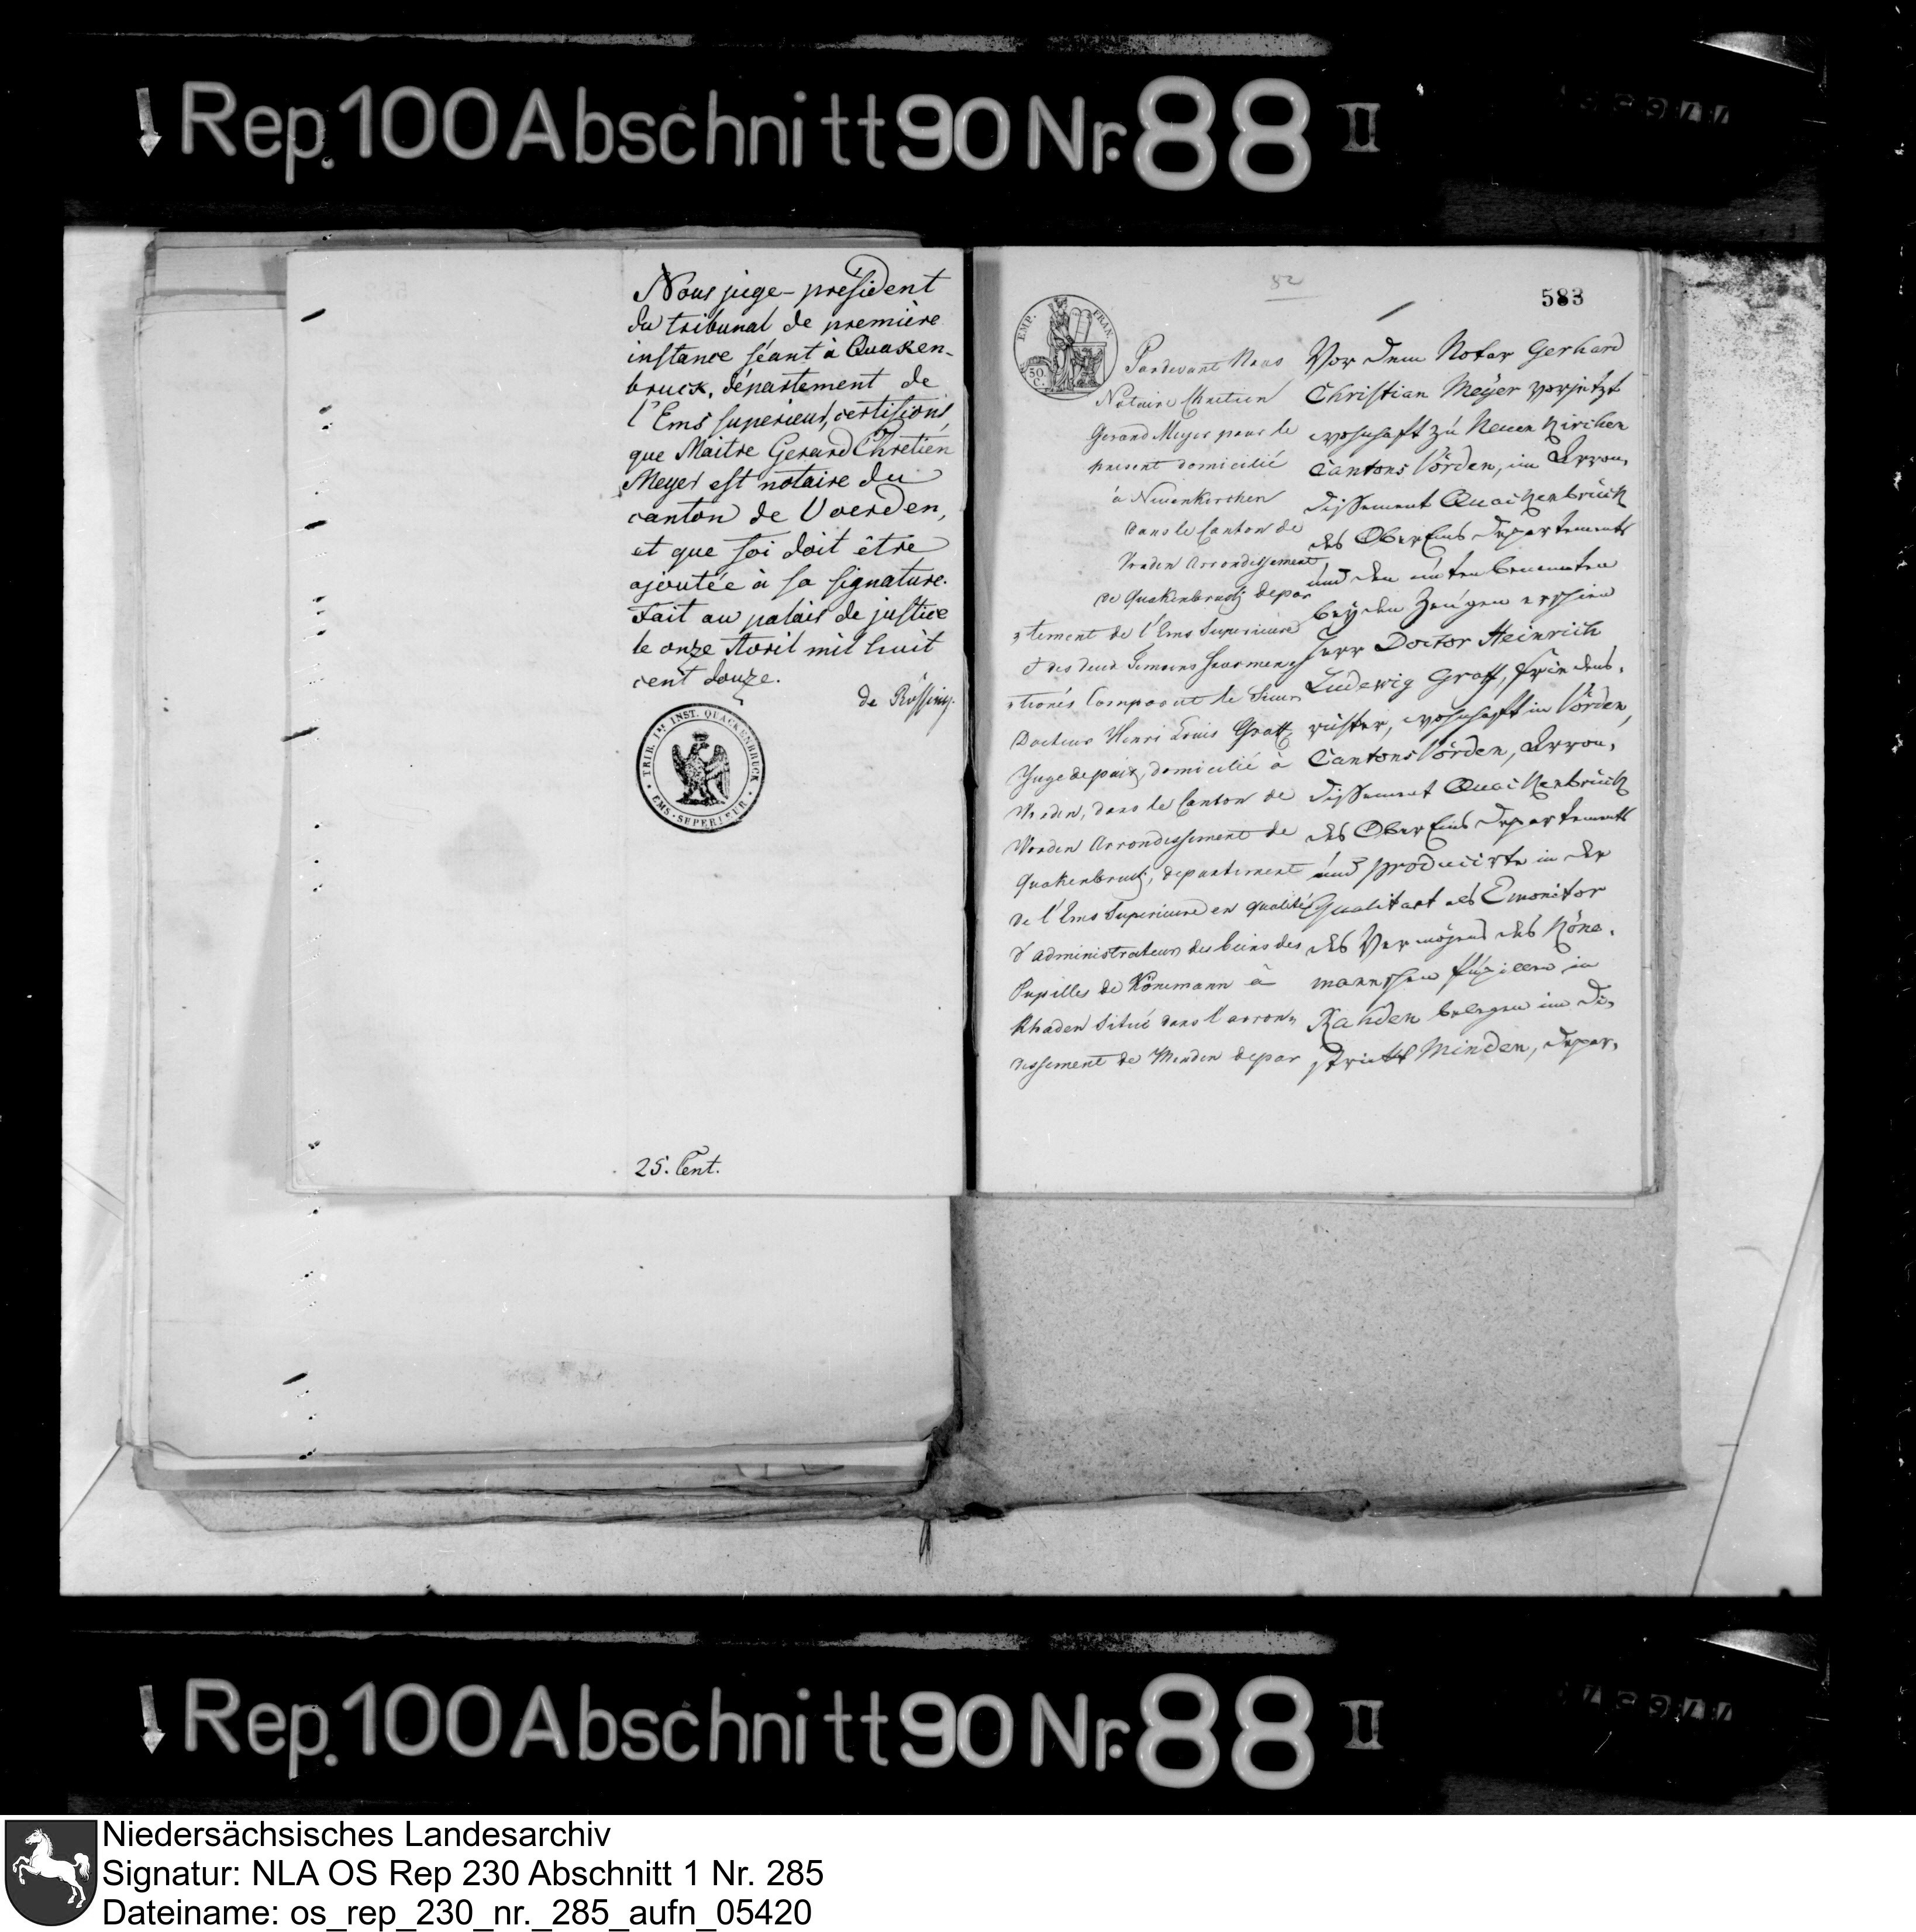 Rep. 100 Abschnitt 90 Nr. 88 II
Nous juge-président
du tribunal de première
instance séant à Quaken-
bruck, département de
l'Ems superieur, certifions,
que Maitre Gerard Chretien
Meyer est notaire du
canton de Voerden,
et que foi doit être
ajoutée à sa signature.
Fait au palais de justice
le onze Avril mil huit
cent douze.
de Rössing.
TRIB. 1re INST. QUACKENBRUCK
EMS-SUPERIEUR
25. Cent.
82
583
EMP. FRAN.
50. C.
Pardevant Nous
Notaire Chretien
Gerard Meyer pour le
present domicilié
à Neuenkirchen
dans le Canton de
Vörden Arrondissement
de Quakenbruck depar
tement de l'Ems Superieure
et des deux Temoins sousmen
tionés comparut le Sieur
Docteur Henri Louis Graff
Juge de paix, domicilié à
Vörden, dans le Canton de
Vorden Arrondissement de
Quakenbruck, departement
de l'Ems Superieure en qualité
d'administrateur des biens des
Pupilles de Könemann à
Rhaden situé dans l'arron
dissement de Minden depar
Vor dem Notar Gerhard
Christian Meyer vorjetzt
wohnhaft zu Neuen Kirchen
Cantons Vörden, im Arron,
dissement Quackenbrück
des OberEms Departements
und den unten benannten
beyden Zeugen erschien
Herr Doctor Heinrich
Ludewig Graff, Friedens,
richter, wohnhaft in Vörden,
Cantons Vörden, Arron,
dissement Quackenbrück
des OberEms Departements
und producirte in der
Qualitaet als
des Vermögens des Köne,
mannschen Pupillen in
Rahden belegen im Di,
strictt Minden, Depar,
Rep. 100 Abschnitt 90 Nr. 88 II
Niedersächsisches Landesarchiv
Signatur: NLA OS Rep 230 Abschnitt 1 Nr. 285
Dateiname: os_rep_230_nr._285_aufn_05420